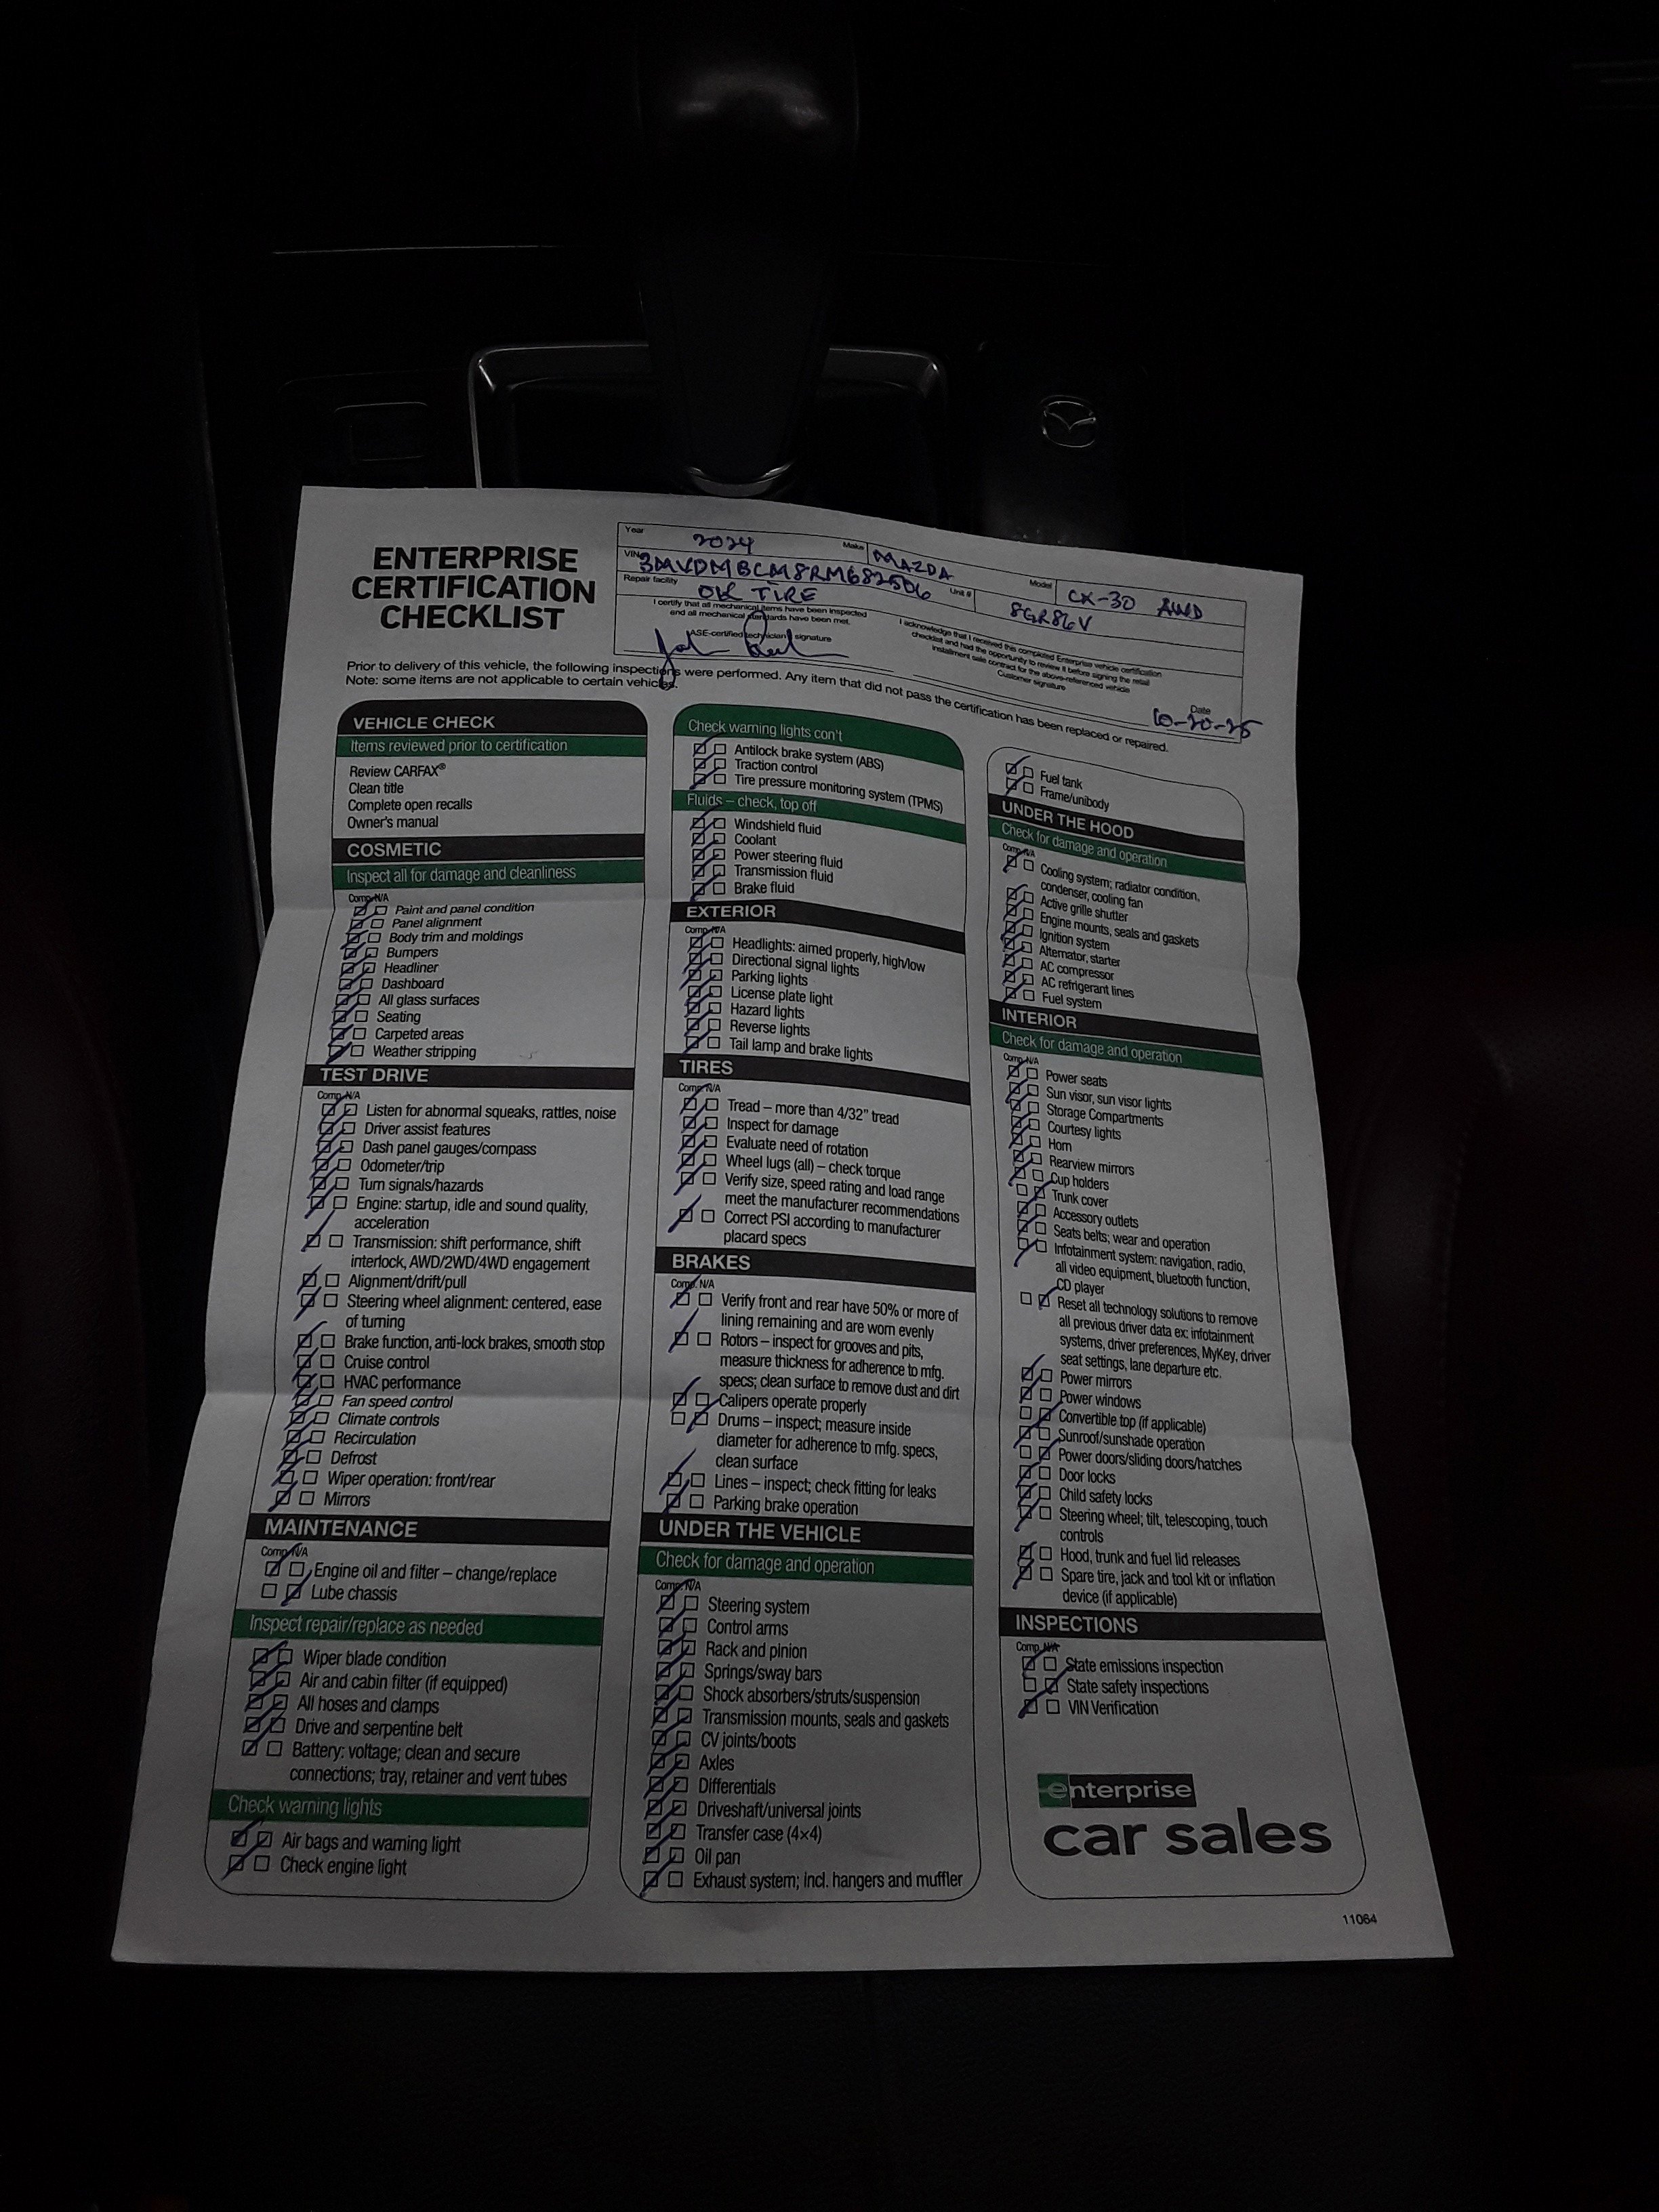 ENTERPRISE
CERTIFICATION
CHECKLIST
Year 2024 Make MAZDA Model CX-30 AWD
VIN 3MVDMBCM8RM682506 Unit # 8GR86V
Repair facility OK TIRE
I certify that all mechanical items have been inspected
and all mechanical standards have been met.
ASE-certified technician signature
I acknowledge that I received this completed Enterprise vehicle certification
checklist and had the opportunity to review it before signing the retail
installment sale contract for the above-referenced vehicle
Customer signature
Date
10-20-25
Prior to delivery of this vehicle, the following inspections were performed. Any item that did not pass the certification has been replaced or repaired.
Note: some items are not applicable to certain vehicles.
VEHICLE CHECK
Items reviewed prior to certification
Review CARFAX®
Clean title
Complete open recalls
Owner's manual
COSMETIC
Inspect all for damage and cleanliness
Comp. N/A
Paint and panel condition
Panel alignment
Body trim and moldings
Bumpers
Headliner
Dashboard
All glass surfaces
Seating
Carpeted areas
Weather stripping
TEST DRIVE
Comp. N/A
Listen for abnormal squeaks, rattles, noise
Driver assist features
Dash panel gauges/compass
Odometer/trip
Turn signals/hazards
Engine: startup, idle and sound quality,
acceleration
Transmission: shift performance, shift
interlock, AWD/2WD/4WD engagement
Alignment/drift/pull
Steering wheel alignment: centered, ease
of turning
Brake function, anti-lock brakes, smooth stop
Cruise control
HVAC performance
Fan speed control
Climate controls
Recirculation
Defrost
Wiper operation: front/rear
Mirrors
MAINTENANCE
Comp. N/A
Engine oil and filter – change/replace
Lube chassis
Inspect repair/replace as needed
Wiper blade condition
Air and cabin filter (if equipped)
All hoses and clamps
Drive and serpentine belt
Battery: voltage; clean and secure
connections; tray, retainer and vent tubes
Check warning lights
Air bags and warning light
Check engine light
Check warning lights con't
Antilock brake system (ABS)
Traction control
Tire pressure monitoring system (TPMS)
Fluids – check, top off
Windshield fluid
Coolant
Power steering fluid
Transmission fluid
Brake fluid
EXTERIOR
Comp. N/A
Headlights: aimed properly, high/low
Directional signal lights
Parking lights
License plate light
Hazard lights
Reverse lights
Tail lamp and brake lights
TIRES
Comp. N/A
Tread – more than 4/32" tread
Inspect for damage
Evaluate need of rotation
Wheel lugs (all) – check torque
Verify size, speed rating and load range
meet the manufacturer recommendations
Correct PSI according to manufacturer
placard specs
BRAKES
Comp. N/A
Verify front and rear have 50% or more of
lining remaining and are worn evenly
Rotors – inspect for grooves and pits,
measure thickness for adherence to mfg.
specs; clean surface to remove dust and dirt
Calipers operate properly
Drums – inspect; measure inside
diameter for adherence to mfg. specs,
clean surface
Lines – inspect; check fitting for leaks
Parking brake operation
UNDER THE VEHICLE
Check for damage and operation
Comp. N/A
Steering system
Control arms
Rack and pinion
Springs/sway bars
Shock absorbers/struts/suspension
Transmission mounts, seals and gaskets
CV joints/boots
Axles
Differentials
Driveshaft/universal joints
Transfer case (4×4)
Oil pan
Exhaust system; incl. hangers and muffler
Fuel tank
Frame/unibody
UNDER THE HOOD
Check for damage and operation
Comp. N/A
Cooling system; radiator condition,
condenser, cooling fan
Active grille shutter
Engine mounts, seals and gaskets
Ignition system
Alternator, starter
AC compressor
AC refrigerant lines
Fuel system
INTERIOR
Check for damage and operation
Comp. N/A
Power seats
Sun visor, sun visor lights
Storage Compartments
Courtesy lights
Horn
Rearview mirrors
Cup holders
Trunk cover
Accessory outlets
Seats belts; wear and operation
Infotainment system: navigation, radio,
all video equipment, bluetooth function,
CD player
Reset all technology solutions to remove
all previous driver data ex: infotainment
systems, driver preferences, MyKey, driver
seat settings, lane departure etc.
Power mirrors
Power windows
Convertible top (if applicable)
Sunroof/sunshade operation
Power doors/sliding doors/hatches
Door locks
Child safety locks
Steering wheel; tilt, telescoping, touch
controls
Hood, trunk and fuel lid releases
Spare tire, jack and tool kit or inflation
device (if applicable)
INSPECTIONS
Comp. N/A
State emissions inspection
State safety inspections
VIN Verification
enterprise
car sales
11064